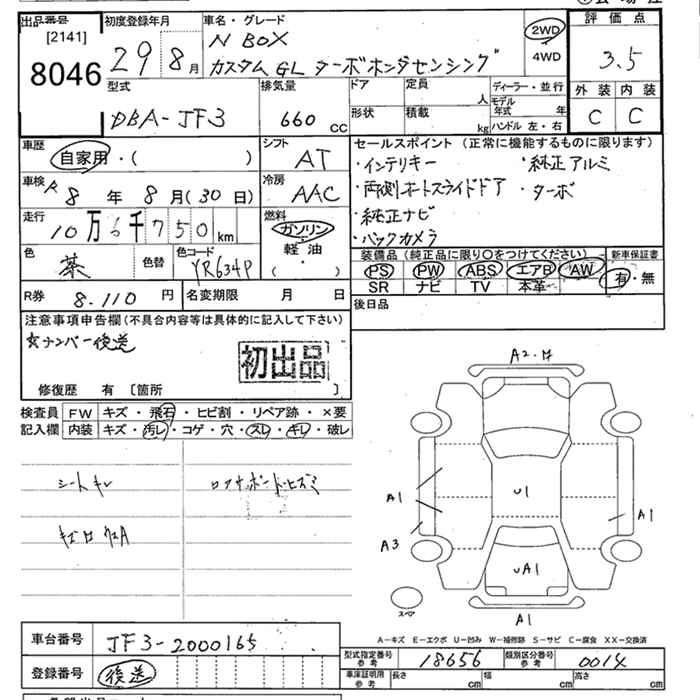 出品番号
[2141]
8046
初度登録年月
29 8月
車名・グレード
N BOX
カスタムGL ターボホンダセンシング
2WD
4WD
評価点
3.5
外装 内装
C C
型式
DBA-JF3
排気量
660 cc
ドア
形状
定員
人
積載
kg
ディーラー・並行
モデル年式 年
ハンドル 左・右
車歴
自家用・( )
シフト
AT
車検
R8年8月(30日)
冷房
AAC
走行
10万6千750km
燃料
ガソリン
軽油
・
( )
色
茶
色替
色コード
YR634P
R券
8.110円
名変期限 月 日
セールスポイント(正常に機能するものに限ります)
・インテリキー ・純正アルミ
・両側オートスライドドア ・ターボ
・純正ナビ
・バックカメラ
装備品(純正品に限り○をつけてください)
新車保証書
PS PW ABS エアB AW
SR ナビ TV 本革
有・無
後日品
注意事項申告欄(不具合内容等は具体的に記入して下さい)
ナンバー後送
初出品
修復歴 有 [箇所 ]
検査員記入欄
FW キズ・飛石・ヒビ割・リペア跡・×要
内装 キズ・汚レ・コゲ・穴・スレ・キレ・破レ
シートキレ
ロアナーボードヒズミ
A2・
A1
A3
U1
A1
UA1
A1
スペア
A-キズ E-エクボ U-凹み W-補修跡 S-サビ C-腐食 XX-交換済
車台番号
JF3-2000165
登録番号
後送
型式指定番号
参考
18656
類別区分番号
参考
0014
車庫証明用
参考
長さ cm 幅 cm 高さ cm